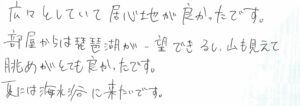 広々としていて居心地が良かったです。
部屋からは琵琶湖が一望できるし、山も見えて
眺めがとても良かったです。
夏には海水浴に来たいです。